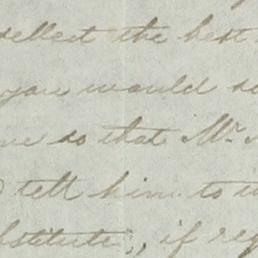 sellect the best
you would se
me so that Mr.
tell him to i
bstitute, if reg